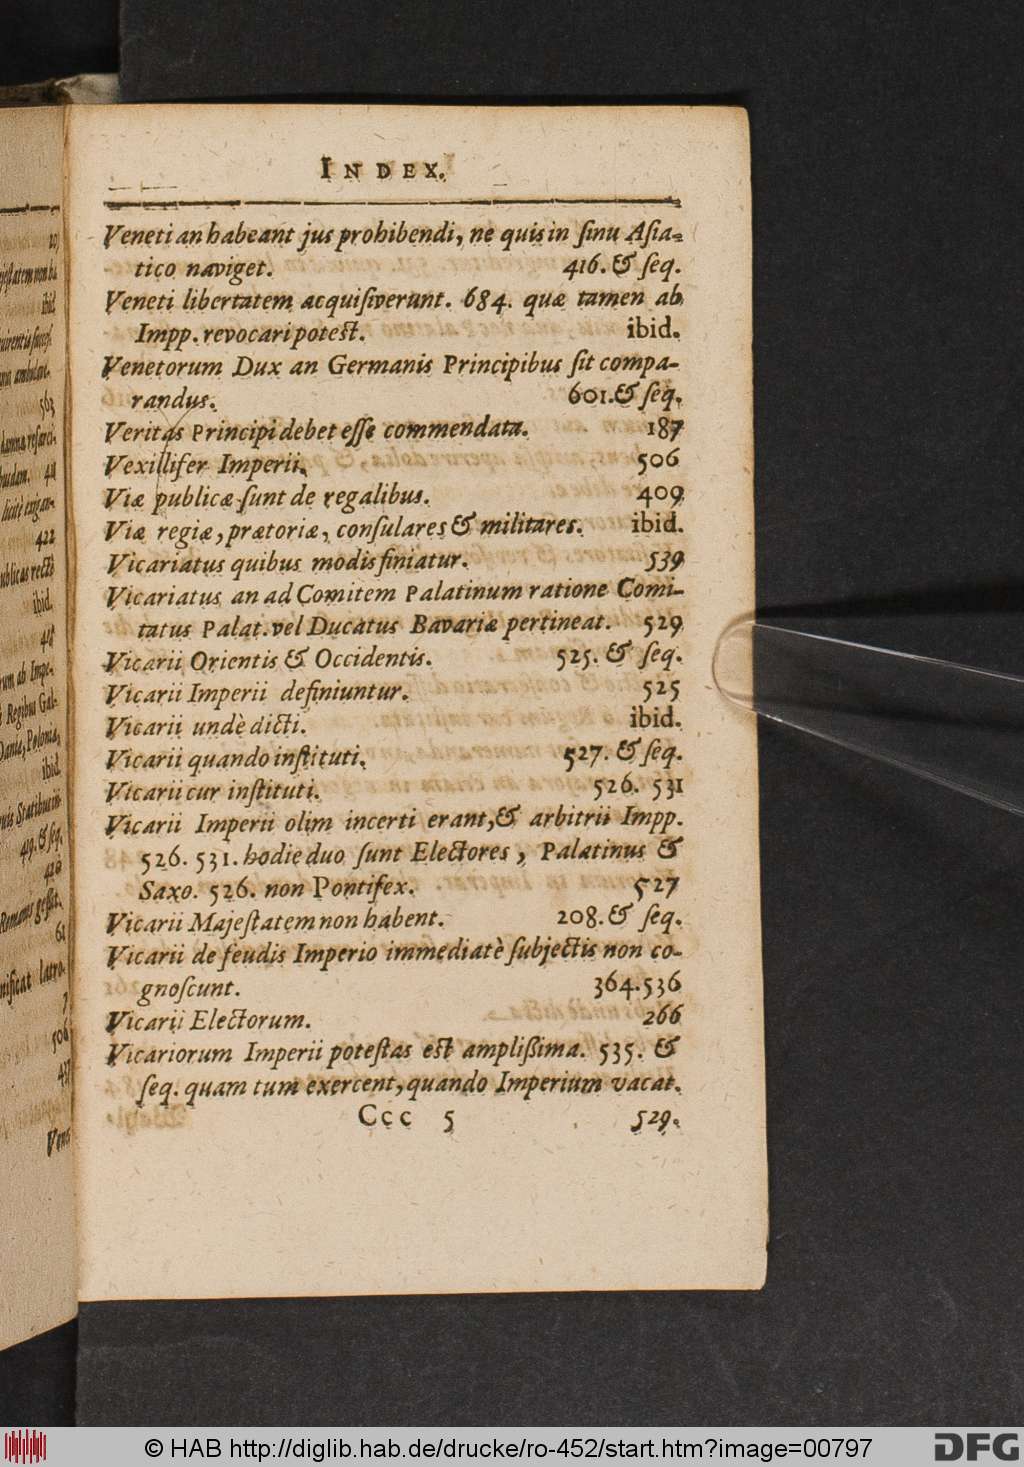 INDEX.
Veneti an habeant jus prohibendi, ne quis in ſinu Aſia-
tico naviget. 416. & ſeq.
Veneti libertatem acquiſiverunt. 684. quæ tamen ab
Impp. revocari poteſt. ibid.
Venetorum Dux an Germanis Principibus ſit compa-
randus. 601. & ſeq.
Veritas Principi debet eſſe commendata. 187
Vexillifer Imperii. 506
Viæ publicæ ſunt de regalibus. 409
Viæ regiæ, prætoriæ, conſulares & militares. ibid.
Vicariatus quibus modis finiatur. 539
Vicariatus an ad Comitem Palatinum ratione Comi-
tatus Palat. vel Ducatus Bavariæ pertineat. 529
Vicarii Orientis & Occidentis. 525. & ſeq.
Vicarii Imperii definiuntur. 525
Vicarii undè dicti. ibid.
Vicarii quando inſtituti. 527. & ſeq.
Vicarii cur inſtituti. 526. 531
Vicarii Imperii olim incerti erant, & arbitrii Impp.
526. 531. hodie duo ſunt Electores, Palatinus &
Saxo. 526. non Pontifex. 527
Vicarii Majeſtatem non habent. 208. & ſeq.
Vicarii de feudis Imperio immediatè ſubjectis non co-
gnoſcunt. 364. 536
Vicarii Electorum. 266
Vicariorum Imperii poteſtas eſt ampliſſima. 535. &
ſeq. quam tum exercent, quando Imperium vacat.
Ccc 5 529.
© HAB http://diglib.hab.de/drucke/ro-452/start.htm?image=00797
DFG